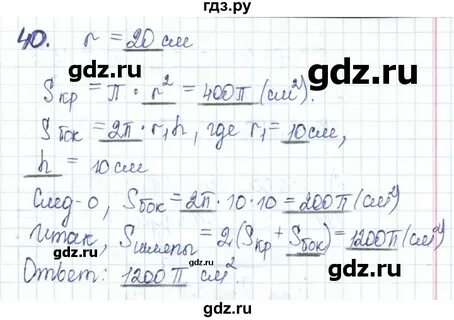 гдз.ру
40. r = 20 см
gdz.ru gdz.ru
Sкр = π · r² = 400π (см²).
Sбок = 2π · r₁h, где r₁ = 10см,
gdz.ru
h = 10см
gdz.ru
След-о, Sбок = 2π · 10 · 10 = 200π (см²)
Итак, Sшляпы = 2(Sкр + Sбок) = 1200π (см²)
gdz.ru gdz.ru
Ответ: 1200π см².